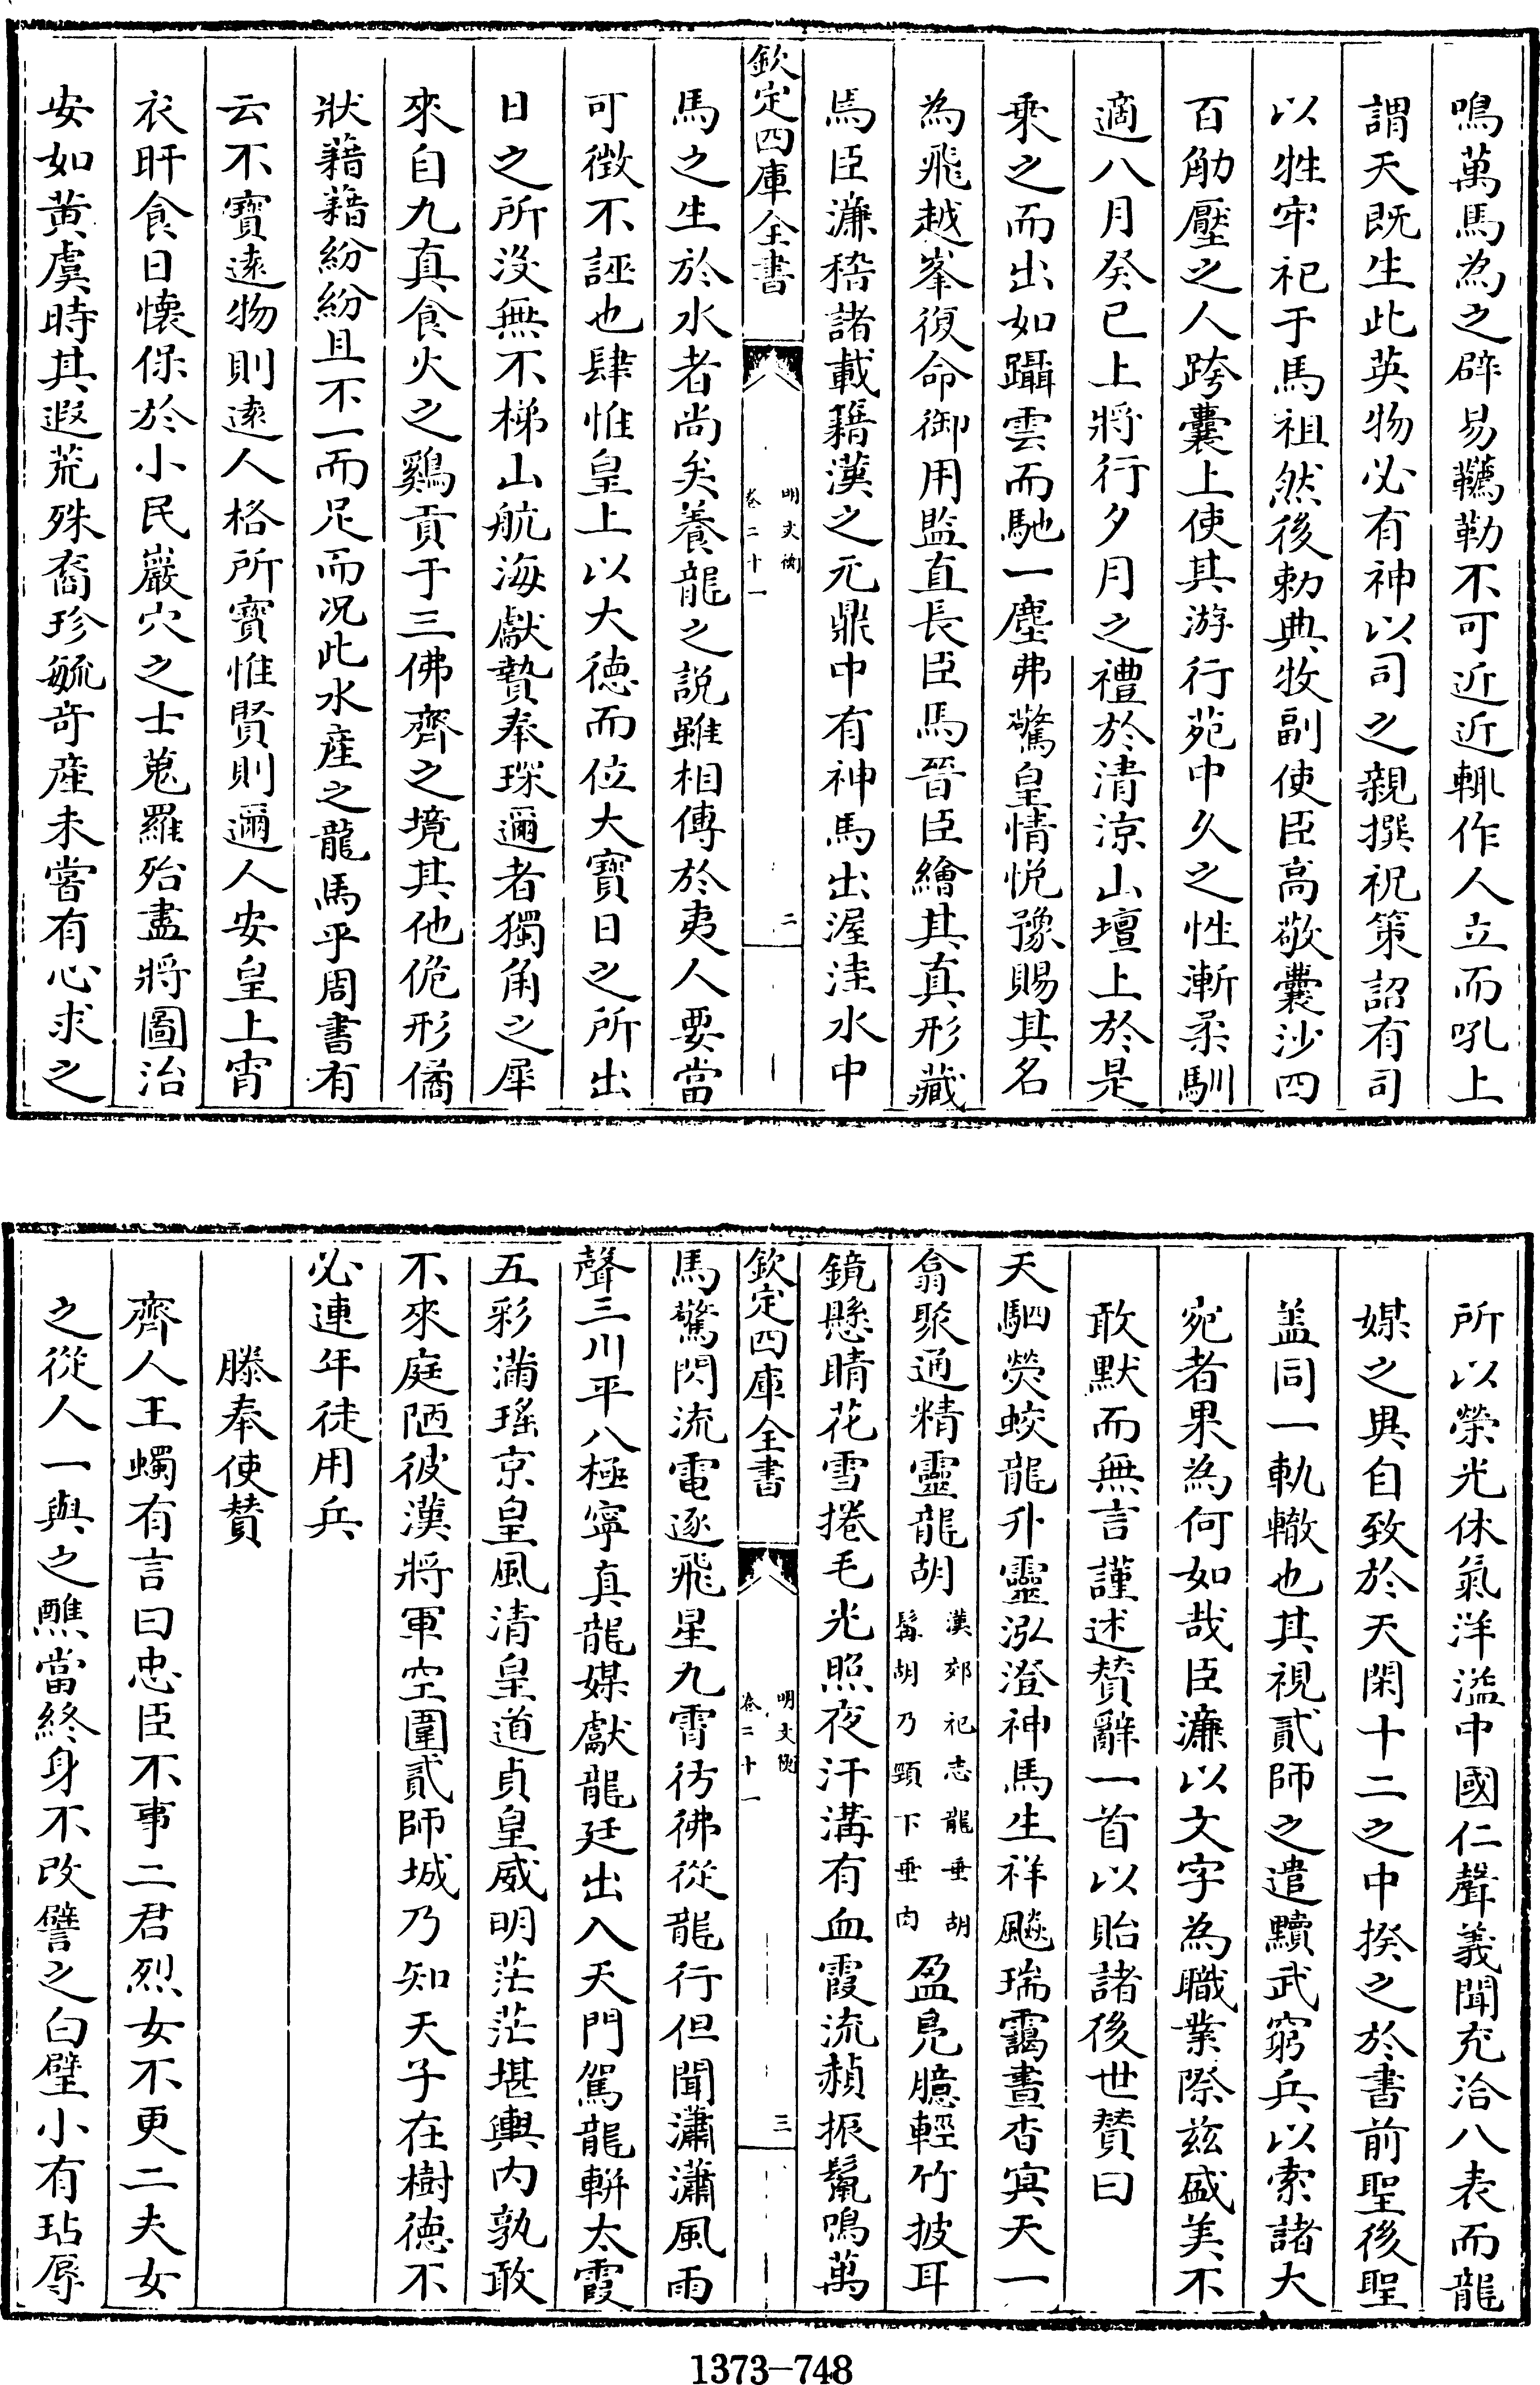 鳴萬馬為之辟易韉勒不可近近輒作人立而吼上
謂天既生此英物必有神以司之親撰祝策詔有司
以牲牢祀于馬祖然後勅典牧副使臣高敬囊沙四
百觔壓之人跨囊上使其游行苑中久之性漸柔馴
適八月癸巳上將行夕月之禮於清涼山壇上於是
乗之而出如躡雲而馳一塵弗驚皇情悦豫賜其名
為飛越峯復命御用監直長臣馬晉臣繪其真形藏
焉臣濂稽諸載籍漢之元鼎中有神馬出渥洼水中
欽定四庫全書
明文衡
卷二十一
二
馬之生於水者尚矣養龍之說雖相傳於夷人要當
可徵不誣也肆惟皇上以大德而位大寶日之所出
日之所沒無不梯山航海獻贄奉琛邇者獨角之犀
來自九真食火之鷄貢于三佛齊之境其他佹形僪
狀藉藉紛紛且不一而足而况此水産之龍馬乎周書有
云不寶遠物則遠人格所寶惟賢則邇人安皇上宵
衣旰食日懷保於小民巖穴之士蒐羅殆盡將圖治
安如黄虞時其遐荒殊裔珍毓奇産未嘗有心求之
所以榮光休氣洋溢中國仁聲義聞充洽八表而龍
媒之異自致於天閑十二之中揆之於書前聖後聖
盖同一軌轍也其視貳師之遣黷武窮兵以索諸大
宛者果為何如哉臣濂以文字為職業際兹盛美不
敢默而無言謹述贊辭一首以貽諸後世贊曰
天駟熒蛟龍升靈泓澄神馬生祥飈瑞靄晝杳冥天一
翕聚通精靈龍胡
漢郊祀志龍垂胡
髯胡乃頸下垂肉
盈鳬臆輕竹披耳
鏡懸睛花雪捲毛光照夜汗溝有血霞流赬振鬣鳴萬
欽定四庫全書
明文衡
卷二十一
三
馬驚閃流電逐飛星九霄彷彿從龍行但聞瀟瀟風雨
聲三川平八極寧真龍媒獻龍廷出入天門駕龍軿太霞
五彩滿瑤京皇風清皇道貞皇威明茫茫堪輿内孰敢
不來庭陋彼漢將軍空圍貳師城乃知天子在樹徳不
必連年徒用兵
滕奉使贊
齊人王蠋有言曰忠臣不事二君烈女不更二夫女
之從人一與之醮當終身不改譬之白璧小有玷辱
1373-748